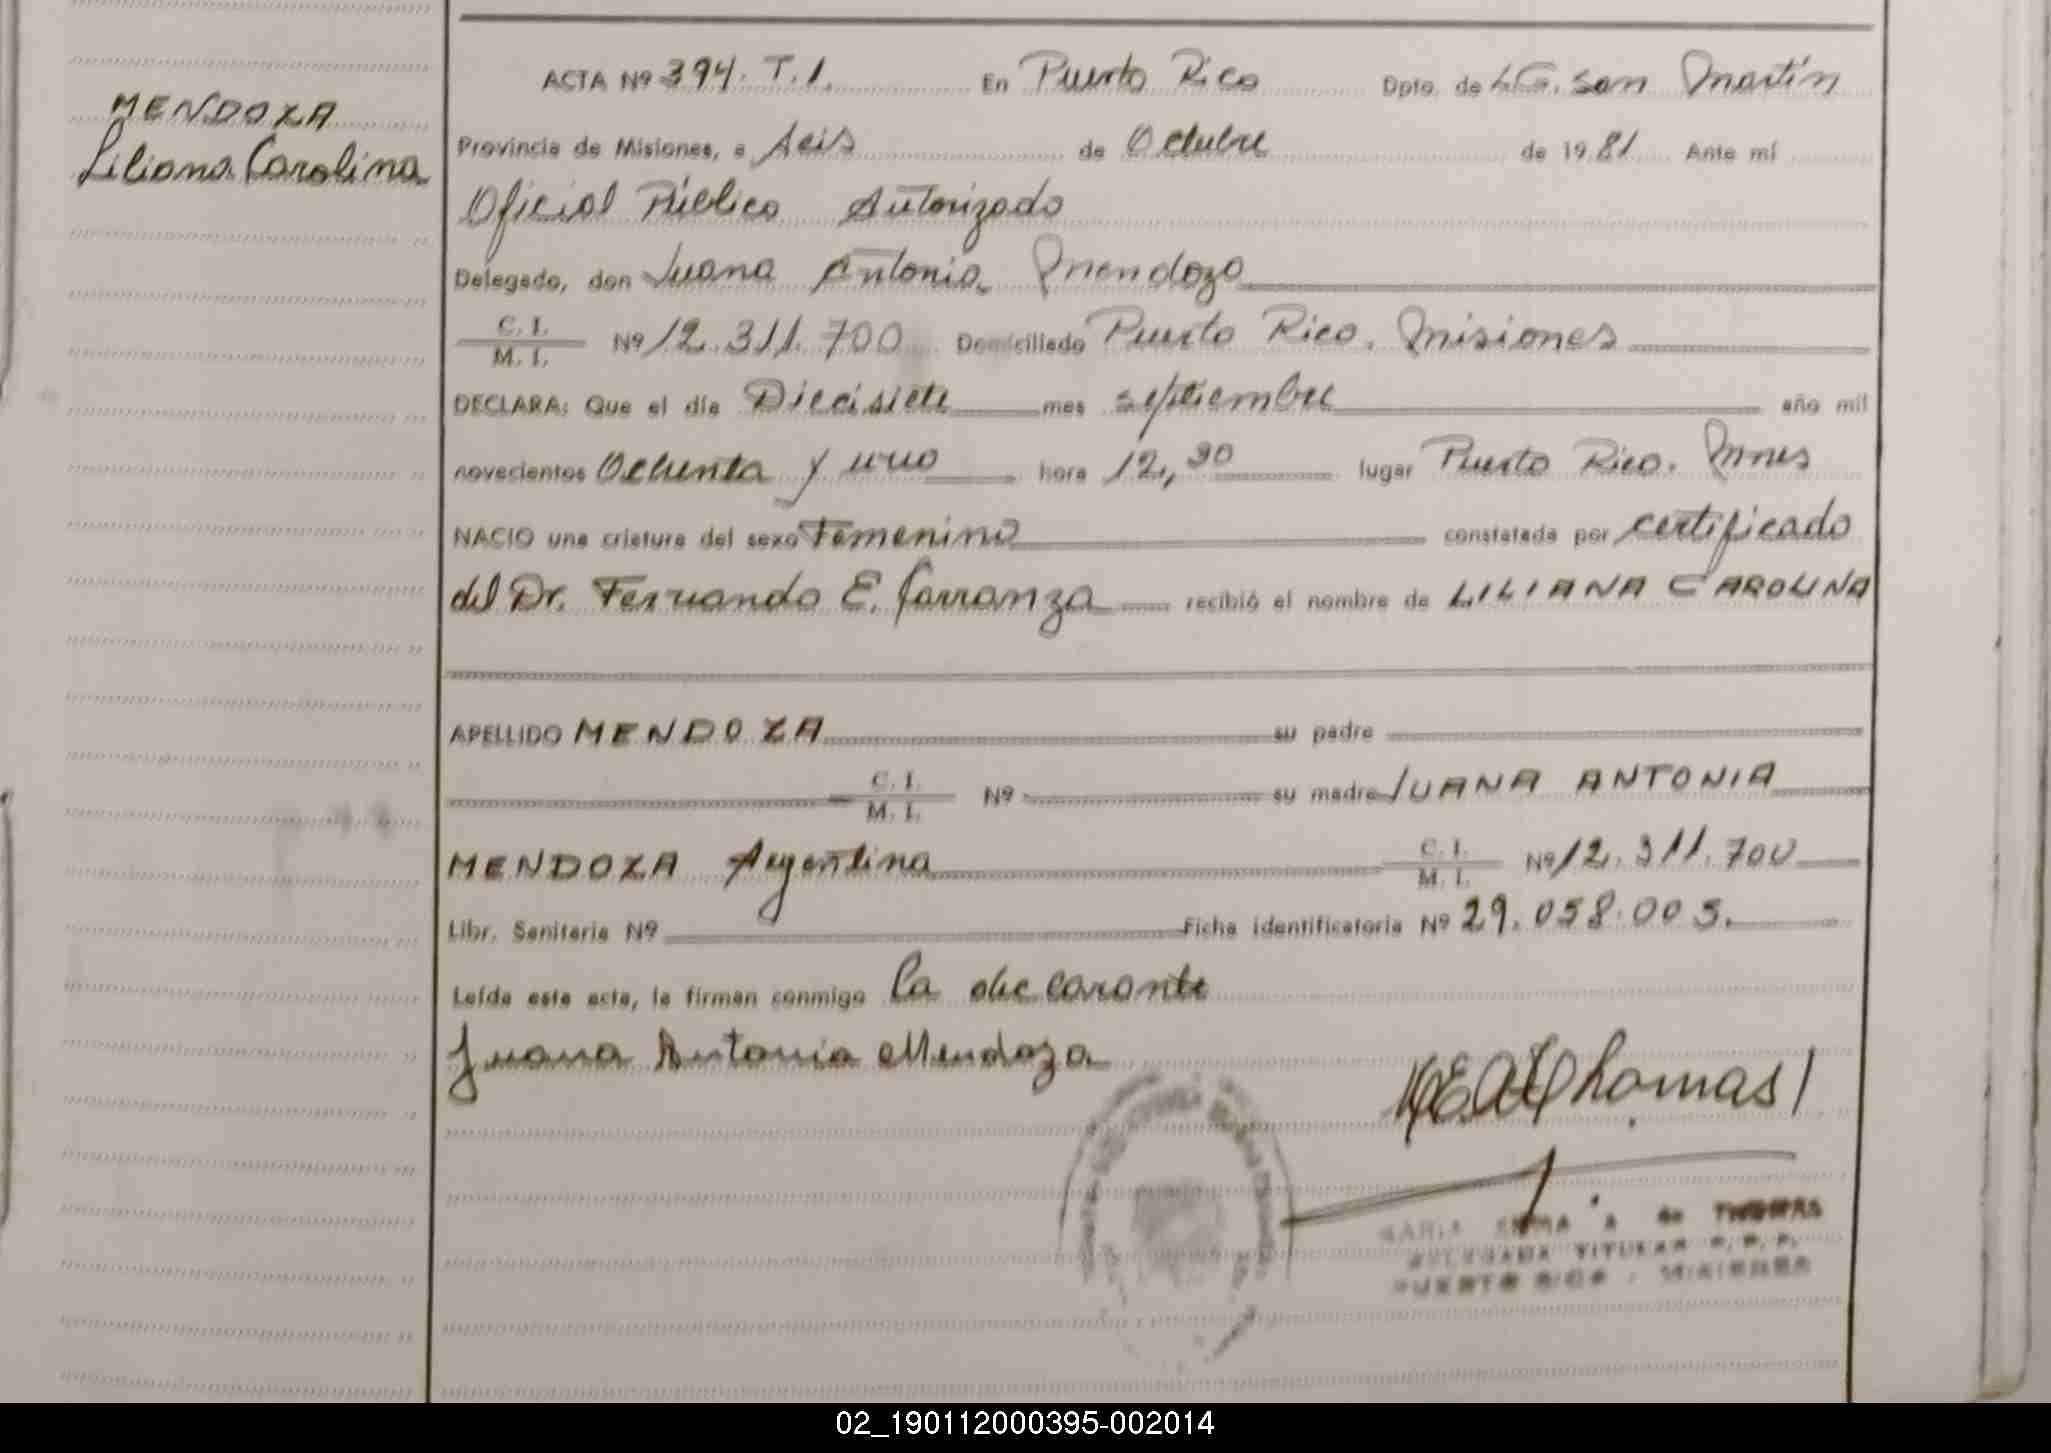 MENDOZA
Liliana Carolina
ACTA Nº 394. T. 1. En Puerto Rico Dpto. de L.G. San Martín
Provincia de Misiones, a Seis de Octubre de 1981 Ante mí
Oficial Público Autorizado
Delegado, don Juana Antonia Mendoza
C. I. M. I. Nº 12.311.700 Domiciliado Puerto Rico. Misiones
DECLARA: Que el día Diecisiete mes septiembre año mil
novecientos Ochenta y uno hora 12,30 lugar Puerto Rico. Mnes
NACIO una criatura del sexo Femenino constatada por certificado
del Dr. Fernando E. Carranza recibió el nombre de LILIANA CAROLINA
APELLIDO MENDOZA su padre
C. I. M. I. Nº su madre JUANA ANTONIA
MENDOZA Argentina C. I. M. I. Nº 12.311.700
Libr. Sanitaria Nº Ficha identificatoria Nº 29.058.005.
Leída esta acta, la firman conmigo la declarante
Juana Antonia Mendoza
Thomas
MARIA EMMA A de THOMAS
DELEGADA TITULAR R. P. P.
PUERTO RICO - MISIONES
02_190112000395-002014